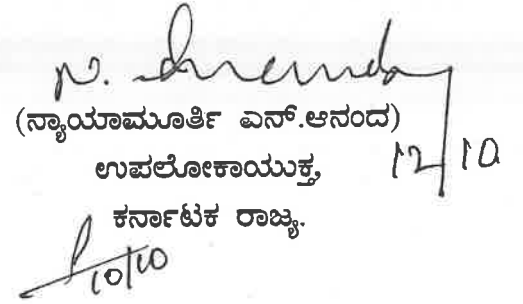 N. Ananda
(ನ್ಯಾಯಾಮೂರ್ತಿ ಎನ್.ಆನಂದ)
ಉಪಲೋಕಾಯುಕ್ತ,
12/10
ಕರ್ನಾಟಕ ರಾಜ್ಯ.
10/10